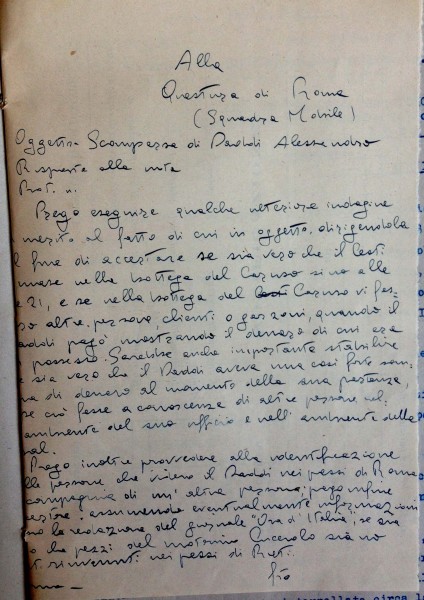 Alla
Questura di Roma
(Squadra Mobile)
Oggetto: Scomparsa di Daddi Alessandro
Risposta alla nota
Prot. n.
Prego eseguire qualche ulteriore indagine
merito al fatto di cui in oggetto, dirigendola
l fine di accertare se sia vero che il
mase nella bottega del Caruso sino alle
e 21, e se nella bottega del Caruso vi fos=
ro altre persone, clienti o garzoni, quando il
addi pagò mostrando il denaro di cui era
possesso. Sarebbe anche importante stabilire
e sia vero che il Daddi aveva una così forte som=
ma di denaro al momento della sua partenza,
se ciò fosse a conoscenza di altre persone nel
ambiente del suo ufficio e nell'ambiente della
Prego inoltre provvedere alla identificazione
lle persone che videro il Daddi nei pressi di Roma
compagnia di un'altra persona; prego infine
assumendo eventualmente informazioni
so la redazione del giornale "Ora d'Italia", se sia
o che pezzi del motorino Cucciolo siano
rinvenuti nei pressi di Rieti.